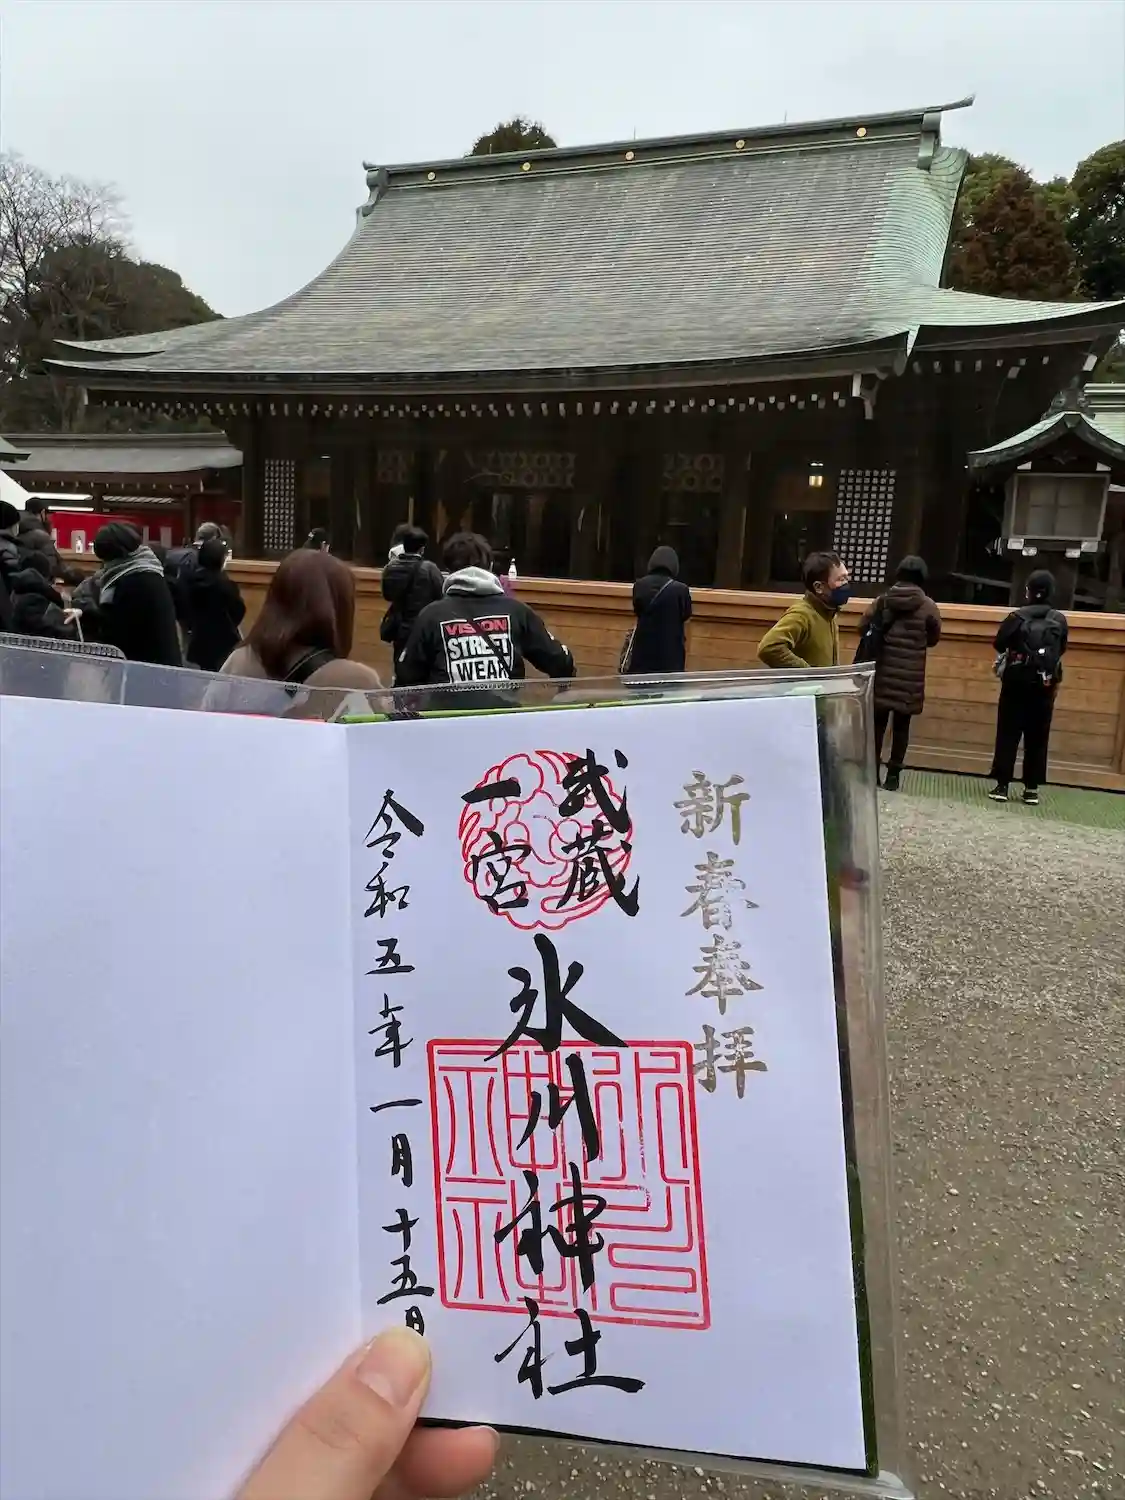 VISION
STREET
WEAR
新春奉拝
武蔵
一宮
氷川神社
令和五年一月十五日